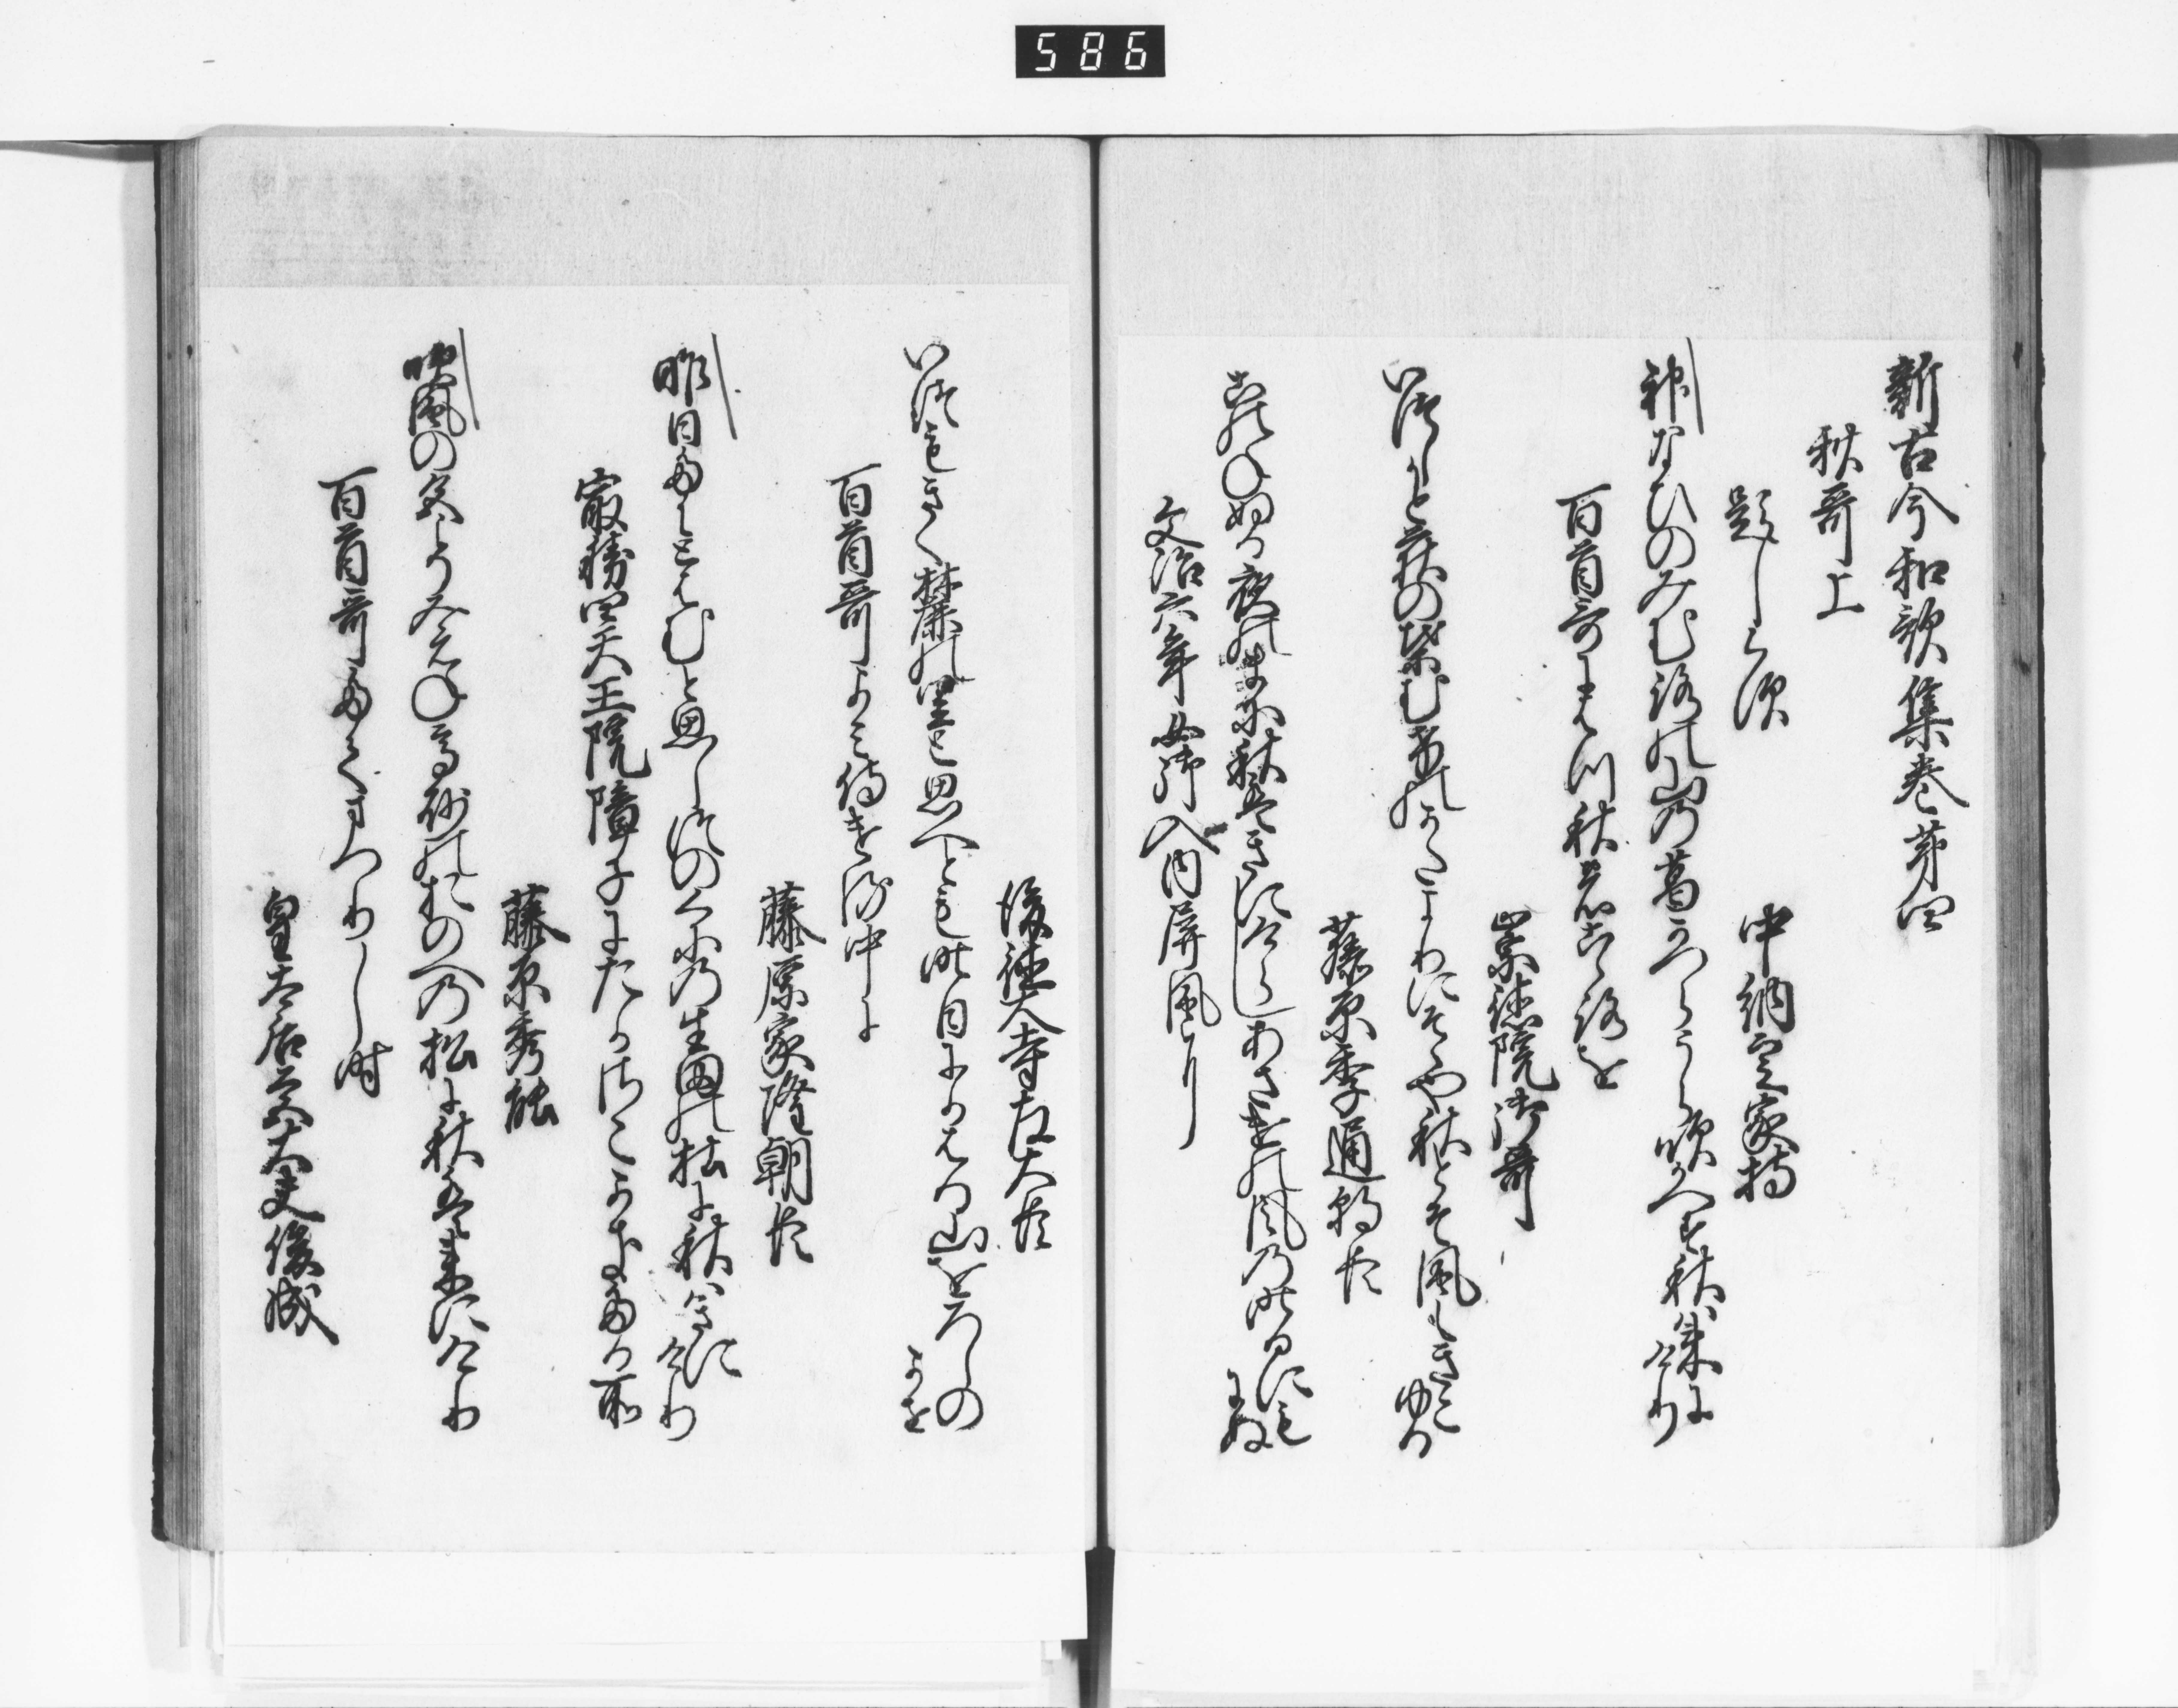 586
新古今和歌集巻第四
秋哥上
題しらす
中納言家持
神なひのみむろの山の葛かつらうら吹かへす秋は来に
けり
百首哥にはつ秋のこゝろを
崇徳院御哥
いつしかと荻の葉むけのかたよりにそゝや秋とそ風もきこ
ゆる
藤原季通朝臣
このねぬる夜のまに秋はきにけらしあさけの風の昨日にも
にぬ
文治六年女御入内屏風に
後徳大寺左大臣
いつもきく麓の里と思へとも昨日にかはる山をろしの
かせ
百首哥よみ侍ける中に
藤原家隆朝臣
昨日たにとはむと思しつのくにの生田の杜に秋はきに
けり
最勝四天王院障子にたかさこかきたる所
藤原秀能
吹風の色こそみえね高砂のおのへの松に秋は来にけり
百首哥たてまつりし時
皇太后宮大夫俊成